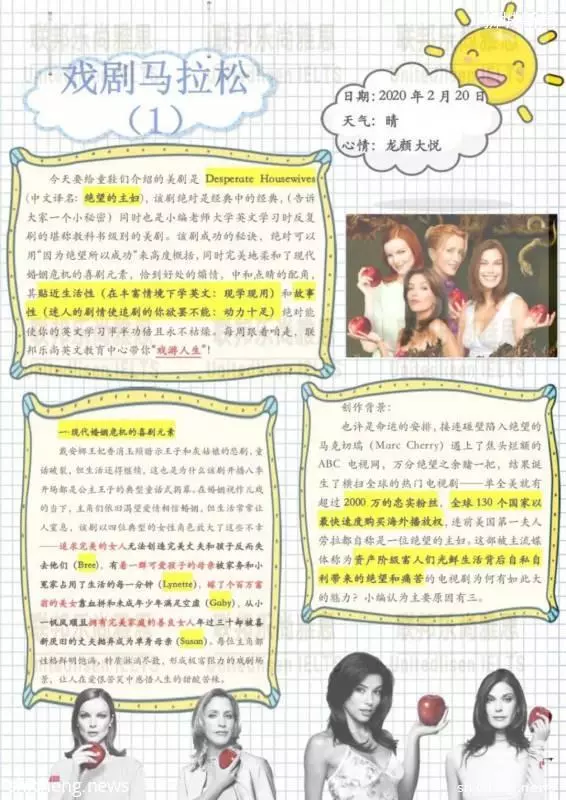 戏剧马拉松
（1）
日期：2020 年 2 月 20 日
天气：晴
心情：龙颜大悦
今天要给童鞋们介绍的美剧是 Desperate Housewives
（中文译名：绝望的主妇），该剧绝对是经典中的经典，（告诉
大家一个小秘密）同时也是小编老师大学英文学习时反复
刷的堪称教科书级别的美剧。该剧成功的秘诀，绝对可以
用“因为绝望所以成功”来高度概括，同时完美地柔和了现代
婚姻危机的喜剧元素，恰到好处的煽情，中和点睛的配角，
其贴近生活性（在丰富情境下学英文：现学现用）和故事
性（迷人的剧情使追剧的你欲罢不能：动力十足）绝对能
使你的英文学习事半功倍且永不枯燥。每周跟着咱走，联
邦乐尚英文教育中心带你“戏游人生”！
创作背景：
也许是命运的安排，接连碰壁陷入绝望的
马克切瑞（Marc Cherry）遇上了焦头烂额的
ABC 电视网，万分绝望之余赌一把，结果诞
生了横扫全球的热门电视剧——单全美就有
超过 2000 万的忠实粉丝，全球 130 个国家以
最快速度购买海外播放权，连前美国第一夫人
劳拉都自称是一位绝望的主妇。这部被主流媒
体称为资产阶级富人们光鲜生活背后自私自
利带来的绝望和痛苦的电视剧为何有如此大
的魅力？小编认为主要原因有三。
一·现代婚姻危机的喜剧元素
戴安娜王妃香消玉殒暗示王子和灰姑娘的悲剧，童
话破裂，但生活还得继续，这也是为什么该剧开播八季
开场都是公主王子的典型童话式揭幕。在婚姻视作儿戏
的当下，主角们依旧渴望爱情相信婚姻，但生活常常让
人窒息，该剧以四位典型的女性角色放大了这些不幸
——追求完美的女人无法创造完美丈夫和孩子反而失
去他们（Bree），有着一群可爱孩子的母亲被家务和小
冤家占用了生活的每一分钟（Lynette），嫁了个百万富
翁的美女靠血拼和未成年少年满足空虚（Gaby），从小
一帆风顺且拥有完美家庭的善良女人年过三十却被喜
新厌旧的丈夫抛弃成为单身母亲（Susan）。每位主角都
性格鲜明饱满，特质淋漓尽致，形成极富张力的戏剧场
景，让人在爱恨苦笑中感悟人生的甜酸苦辣。
shicheng.news